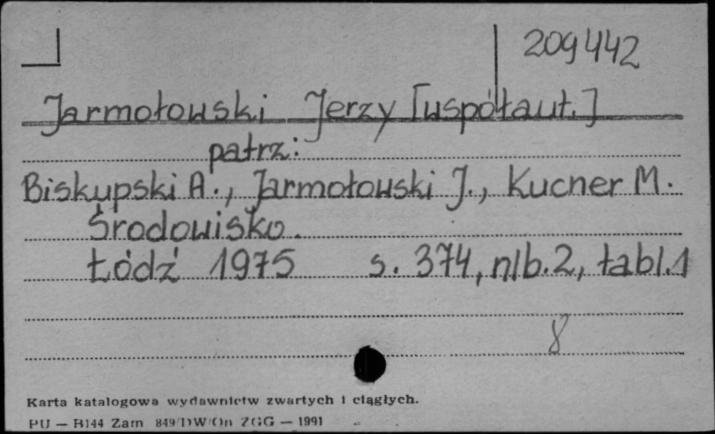 209442
Jarmołowski Jerzy [współaut.]
patrz:
Biskupski A., Jarmołowski J., Kucner M.
Środowisko.
Łódź 1975 s. 374, nlb. 2, tabl. 1
8
Karta katalogowa wydawnictw zwartych i ciągłych.
PU — B144 Zam 849/DW/On ZGG — 1991